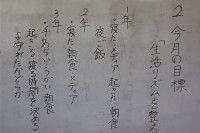 2 今月の目標
「生活リズムを整え
1年
・寝たメディア起きた朝食
夜ご飯
2年
・寝た朝食メディア
3年
・手あらいうがい朝食
起きる寝る時間を決める
守れたかどうか